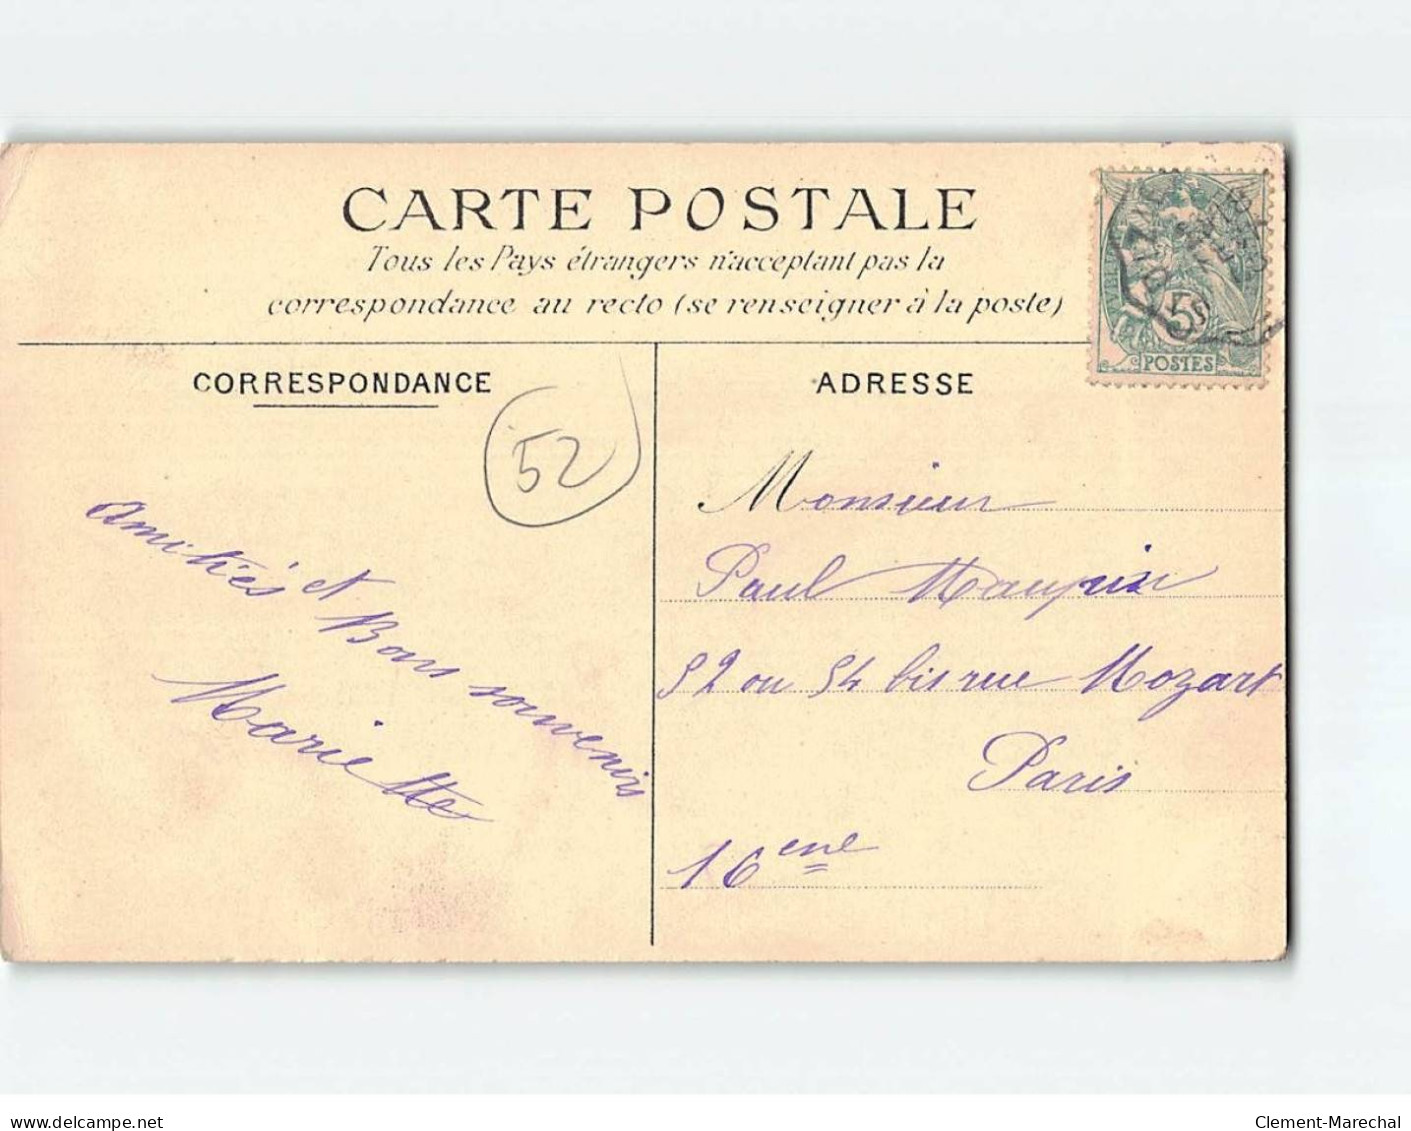 CARTE POSTALE
Tous les Pays étrangers n'acceptant pas la
correspondance au recto (se renseigner à la poste)
CORRESPONDANCE
ADRESSE
5
POSTES
52
amitiés et
Bons souvenirs
Mariette
Monsieur
Paul Maupin
52 ou 54 bis rue Mozart
Paris
16eme
www.delcampe.net
Clement-Marechal